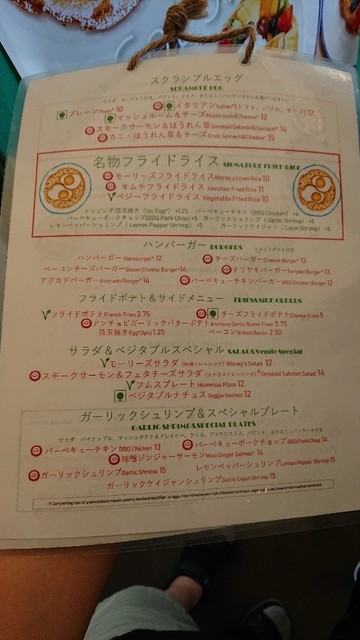 スクランブルエッグ
SCRAMBLE EGG
プレーン/Plain* 10
イタリアン/Italian*(トマト、バジル、チーズ) 12
マッシュルーム&チーズMushroom&Cheese* 12
スモークサーモン&ほうれん草Smoked Salmon&Spinach* 14
カニ・ほうれん草&チーズ Crab Spinach&Cheese* 15
名物フライドライス SIGNATURE FRIED RICE
モーリーズフライドライスMorey's Fried Rice 11
キムチフライドライス Kimchee Fried Rice 11
ベジーフライドライスVeggie Fried Rice 10
トッピング:目玉焼き (1pc Egg*) +1.25 バーベキューチキン (BBQ Chicken) +6
バーベキューポークチョップ(BBQ Pork Chop) +6 ガーリックシュリンプ (Garlic Shrimp) +5
レモンペッパーシュリンプ (Lemon Pepper Shrimp) +5 ガーリックケイジャン (Cajun Shrimp) +5
ハンバーガー BURGERS
ハンバーガー Hamburger* 12
チーズバーガーCheese Burger* 13
ベーコンチーズバーガーBacon Cheese Burger* 14
テリヤキバーガーTeriyaki Burger* 13
アボカドバーガーAvocado Burger* 14
バーベキューチキンバーガーBBQ Chicken Burger 12
フライドポテト&サイドメニュー FRIES&SIDE ORDERS
フライドポテトFrench Fries 3.75
チーズフライドポテトCheese Fries 5
アンチョビガーリックバターポテトAnchovy Garlic Butter Fries 5.75
目玉焼きEgg*(1pc) 1.25
ベーコンGrilled Bacon 2.50
サラダ&ベジタブルスペシャル SALAD&Veggie Special
モーリーズサラダ Morey's Salad 12
スモークサーモン&フェタチーズサラダ *Smoked Salmon Salad 14
フムスプレート Hummus Plate 12
ベジタブルナチョス Veggie Nachos 12
ガーリックシュリンプ&スペシャルプレート
GARLIC SHRIMP&SPECIAL PLATES
バーベキューチキンBBQ Chicken 13
バーベキューポークチョップBBQ Pork Chop 14
味噌ジンジャーサーモンMiso Ginger Salmon* 16
ガーリックシュリンプGarlic Shrimp 15
レモンペッパーシュリンプLemon Pepper Shrimp 15
ガーリックケイジャンシュリンプGarlic Cajun Shrimp 15